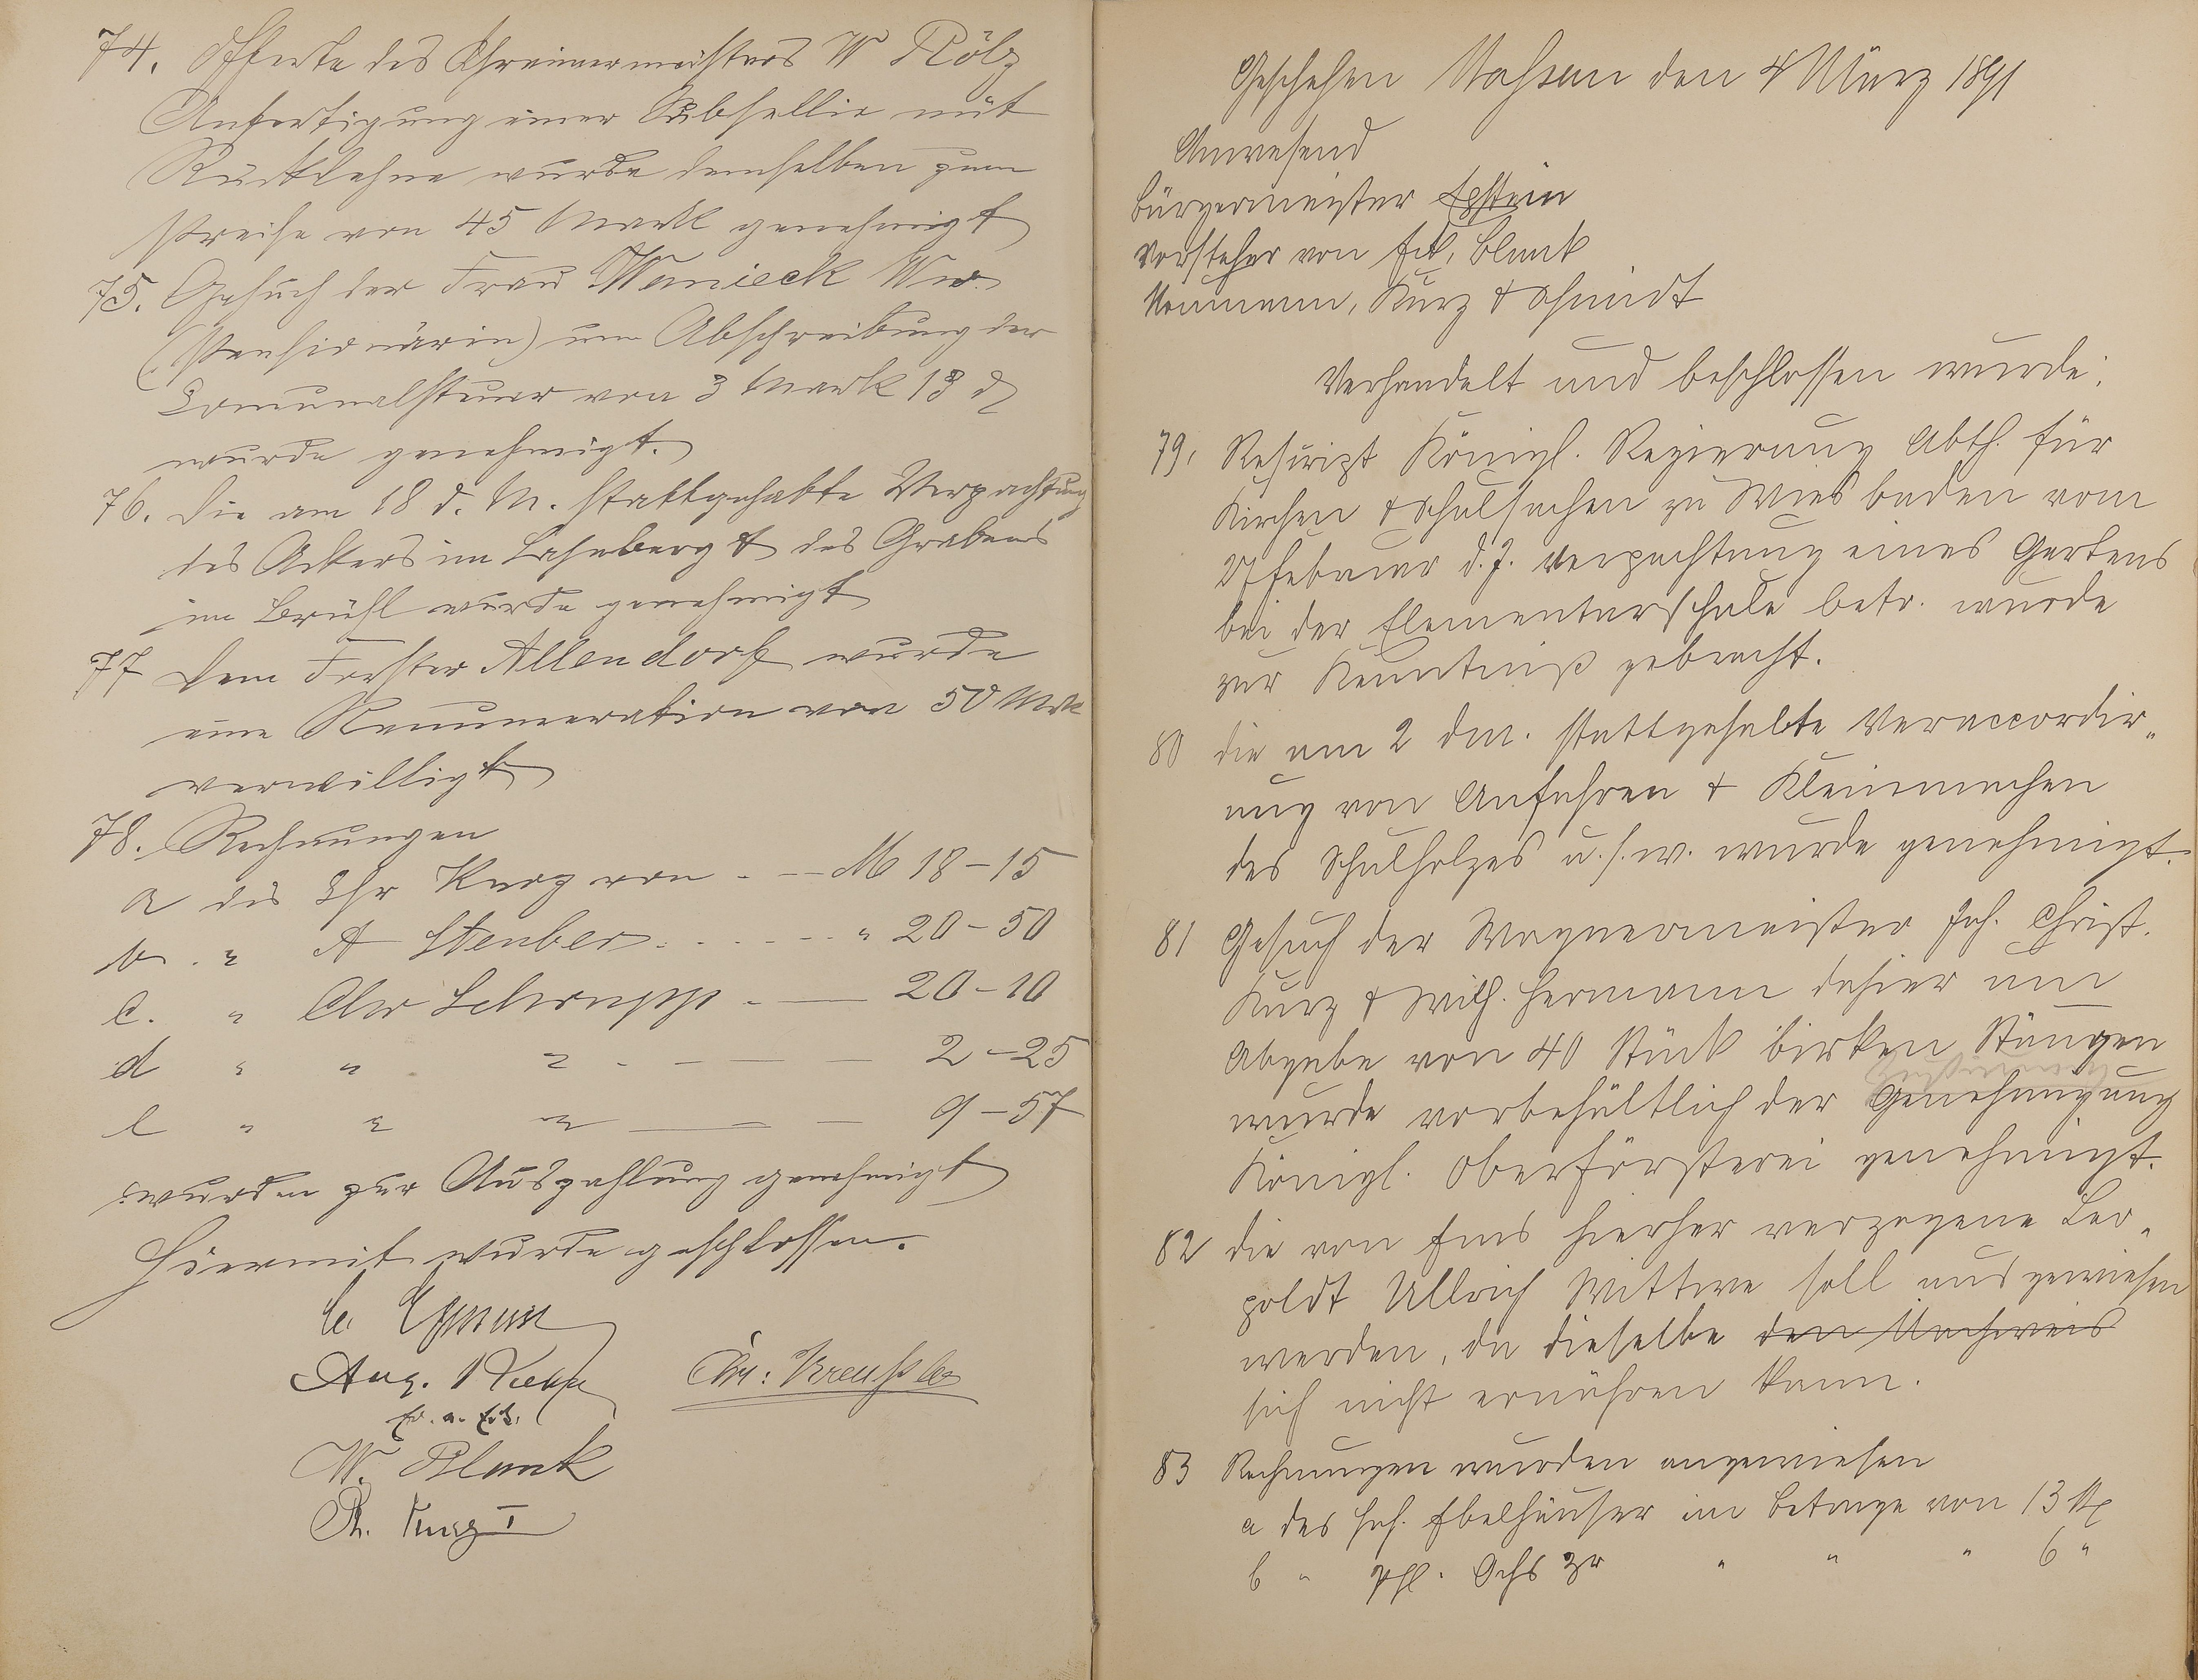 74. Offerte des Schreinermeisters W Pölz
Anfertigung einer Subsellie mit
Rücklehne wurde demselben zum
Preise von 45 Mark genehmigt
75. Gesuch der Frau Wanieck Ww.
(Pensionärin) um Abschreibung der
Comunalsteuer von 3 Mark 13 ₰
wurde genehmigt.
76. Die am 18 d. M. stattgehabte Verpachtung
des Ackers im Lahnberg & des Grabens
im Brühl wurde genehmigt
77 Dem Förster Allendorf wurde
eine Remuneration von 50 Mrk
verwilligt
78. Rechnungen
a des Chr Kurz von - - M 18-15
b. " A Steuber - - - - " 20-50
c. " Chr Schrupp - - 20-10
d " " " - - - 2-25
e " " " - - - 9-57
wurden zur Auszahlung genehmigt
Hiermit wurde geschlossen.
Aug.
Chr: Kreußler
W. Blank
Ph. Kurz I
Geschehen Nassau den 4 März 1891
Anwesend
Bürgermeister Epstein
Vorsteher von Eck, Blank
Neumann, Kurz & Schmidt
Verhandelt und beschlossen wurde:
79, Rescript Königl. Regierung Abth. für
Kirchen & Schulsachen zu Wiesbaden vom
27 Februar d. J. Verpachtung eines Gartens
bei der Elementarschule betr. wurde
zur Kenntniß gebracht.
80 die am 2 dm. stattgehabte Veraccordir„
ung von Anfahren & Kleinmachen
des Schulholzes u. s. w. wurde genehmigt.
81 Gesuch der Wagnermeister Joh. Christ.
Kurz & Wilh. Hermann dahier um
Abgabe von 40 Stück birken Stangen
wurde vorbehältlich der Genehmigung
Königl. Oberförsterei genehmigt.
82 die von Ems hierher verzogene Leo„
poldt Ullrich Wittwe soll ausgewiesen
werden, da dieselbe den Nachweis
sich nicht ernähren kann.
83 Rechnungen wurden angewiesen
a des Joh. Ebelhäuser im Betrage von 13 M
b " Phl. Ochs 3r " " " 6 "